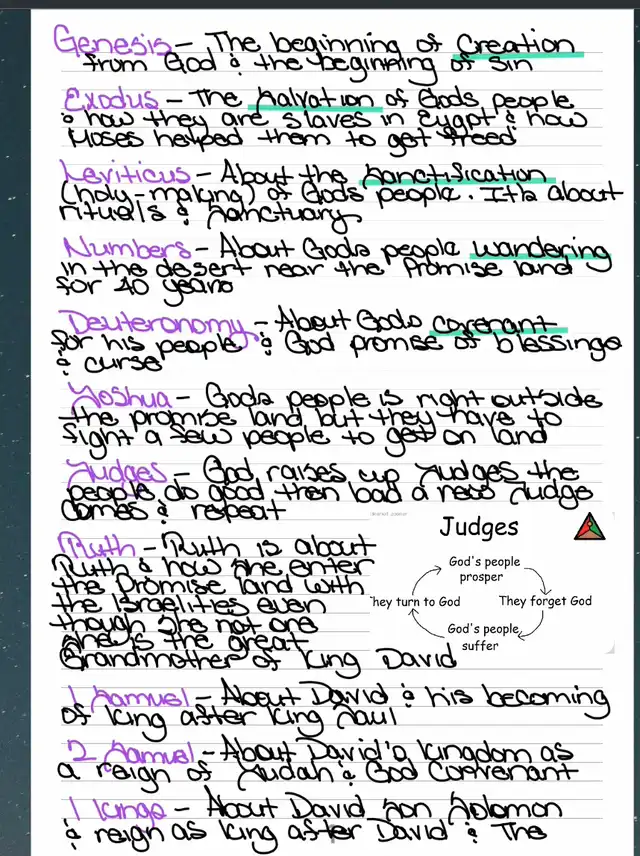 Genesis – The beginning of Creation
from God & the beginning of sin
Exodus – The Salvation of Gods people
& how they are slaves in Eygpt & how
Moses helped them to get freed
Leviticus – About the Sanctification
(holy-making) of Gods people. It's about
rituals & Sanctuary
Numbers – About Gods people wandering
in the desert near the Promise land
for 40 years
Deuteronomy – About Gods covenant
for his people & God promise of blessings
& curse
Joshua – Gods people is right outside
the promise land but they have to
fight a few people to get on land
Judges – God raises up Judges the
people do good then bad a new Judge
comes & repeat
Judges
God's people
prosper
They forget God
God's people
suffer
They turn to God
Ruth – Ruth is about
Ruth & how she enter
the Promise land with
the Israelities even
though She not one
she is the great
Grandmother of King David
1 Samuel – About David & his becoming
of King after King Saul
2 Samuel – About David's Kingdom as
a reign of Judah & God Convenant
1 Kings – About David Son Solomon
& reign as King after David & The